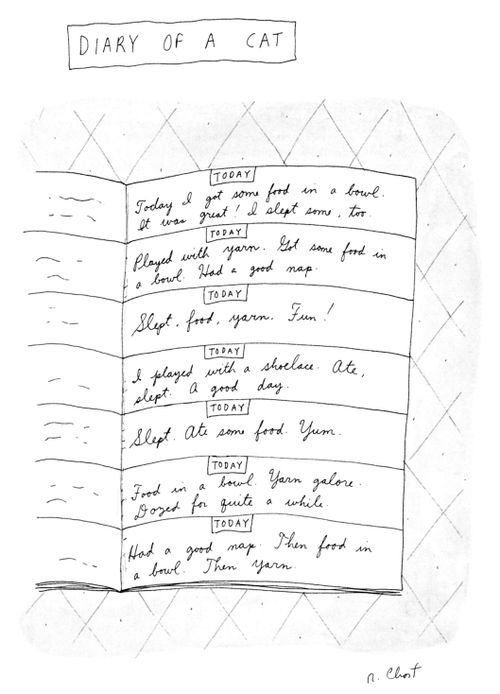 DIARY OF A CAT
TODAY
Today I got some food in a bowl.
It was great! I slept some, too.
TODAY
Played with yarn. Got some food in
a bowl. Had a good nap.
TODAY
Slept, food, yarn. Fun!
TODAY
I played with a shoelace. Ate,
slept. A good day.
TODAY
Slept. Ate some food. Yum.
TODAY
Food in a bowl. Yarn galore.
Dozed for quite a while.
TODAY
Had a good nap. Then food in
a bowl. Then yarn.
R. Chast